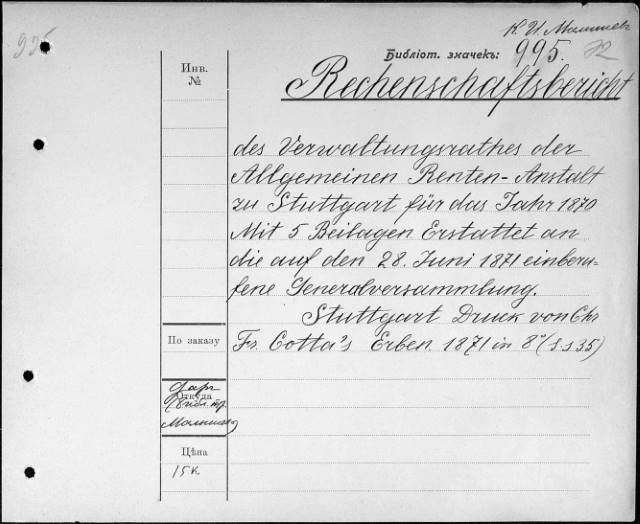 К. И. Малышев
995
Библіот. значекъ: 995.
Инв. №
Rechenschaftsbericht
des Verwaltungsrathes der
Allgemeinen Renten-Anstalt
zu Stuttgart für das Jahr 1870
Mit 5 Beilagen. Erstattet an
die auf den 28. Juni 1871 einberu-
fene Generalversammlung.
Stuttgart Druck von Chr.
По заказу
Fr. Cotta's Erben. 1871 in 8° (S.s 35)
Откуда
Даръ
Малышева
Цѣна
15 к